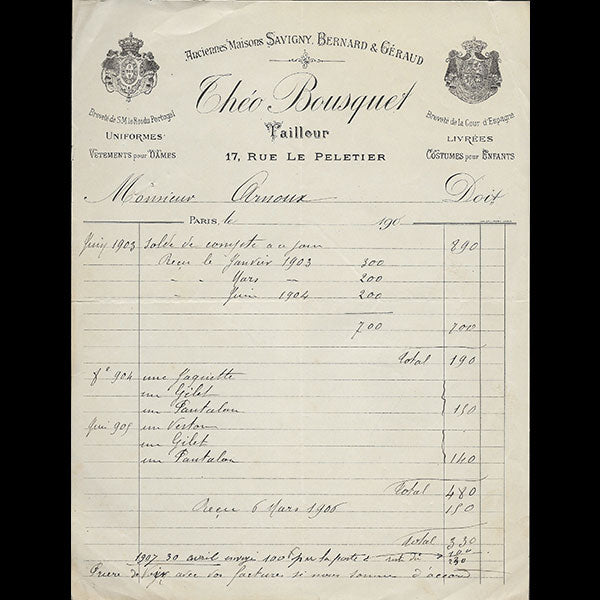 Anciennes Maisons Savigny, Bernard & Géraud
Théo Bousquet
Tailleur
17, Rue Le Peletier
Breveté de S.M. le Roi du Portugal
Uniformes
Vêtements pour Dames
Breveté de la Cour d'Espagne
Livrées
Costumes pour Enfants
Monsieur Arnoux Doit
Paris, le 190
Juin 1903 Solde de compte a ce jour 890
Reçu le Janvier 1903 300
" " Mars — 200
" " Juin 1904 200
700 700
Total 190
fe 904 une Jaquette
un Gilet
un Pantalon 150
Mai 905 un Veston
un Gilet
un Pantalon 140
Total 480
Reçu 6 Mars 1906 150
Total 330
1907 30 avril envoyé 100 f par la poste reste dû 100
230
Prière de voir avec vos factures si nous sommes d'accord